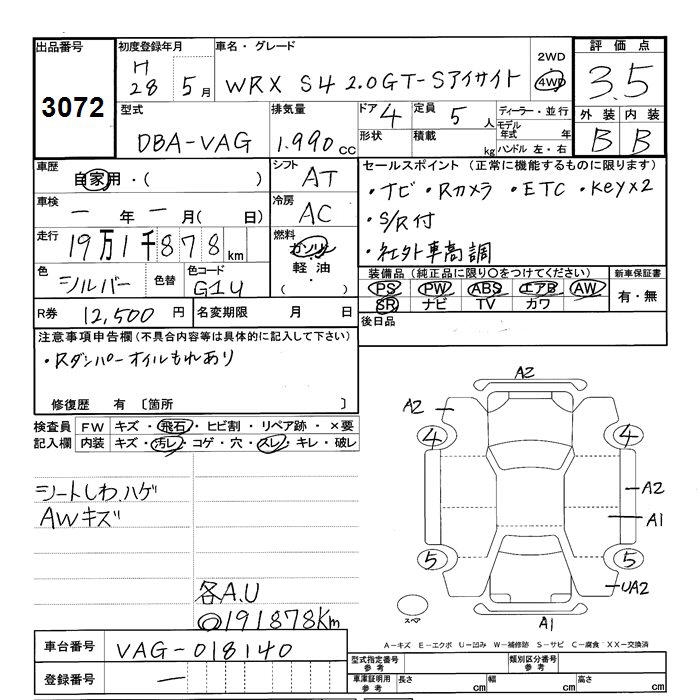 出品番号 初度登録年月 車名・グレード 2WD 評価点
3072 H 28 5月 WRX S4 2.0GT-Sアイサイト 4WD 3.5
型式 排気量 ドア 4 定員 5人 ディーラー・並行 外装 内装
DBA-VAG 1.990cc 形状 積載 kg モデル年式 年 ハンドル 左・右 B B
車歴 シフト セールスポイント (正常に機能するものに限ります)
自家用・( ) AT ・ナビ・Rカメラ・ETC・Key×2
車検 冷房 ・S/R付
ー年ー月(日) AC ・社外車高調
走行 燃料
19万1千878km ガソリン 軽油 ・( )
装備品 (純正品に限り○をつけてください) 新車保証書
色 シルバー 色替 色コード G1U PS PW ABS エアB AW 有・無
SR ナビ TV カワ
R券 12,500円 名変期限 月 日 後日品
注意事項申告欄 (不具合内容等は具体的に記入して下さい)
・Rダンパーオイルもれあり
修復歴 有 〔箇所 〕
検査員 FW キズ・飛石・ヒビ割・リペア跡・×要
記入欄 内装 キズ・汚レ・コゲ・穴・スレ・キレ・破レ
A2
A2
4 4
シートしわ.ハゲ A2
AWキズ A1
5 5
各A.U UA2
◎191878Km スペア A1
車台番号 VAG-018140
A-キズ E-エクボ U-凹み W-補修跡 S-サビ C-腐食 XX-交換済
型式指定番号 参考 類別区分番号 参考
登録番号 ー 車庫証明用 参考 長さ cm 幅 cm 高さ cm